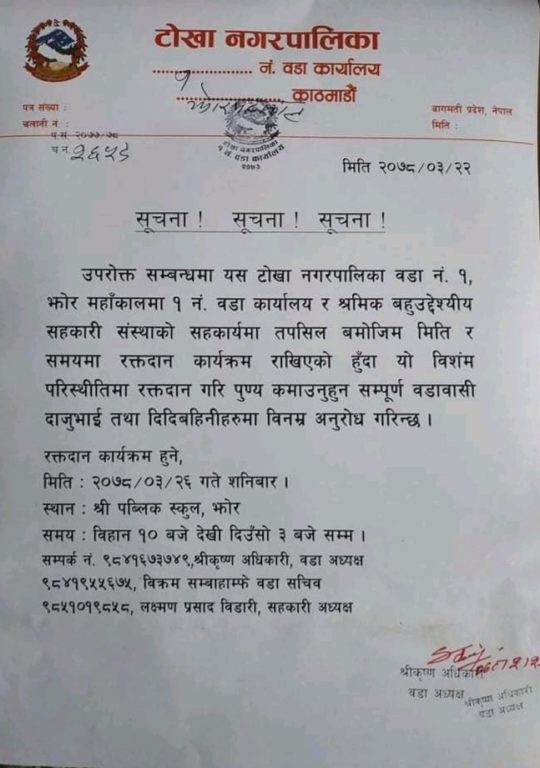 टोखा नगरपालिका
१ नं. वडा कार्यालय
काठमाडौं
पत्र संख्या :
चलानी नं. :
बागमती प्रदेश, नेपाल
मिति :
प.सं. २०७७/७८
च.नं. २६५६
टोखा नगरपालिका
१ नं. वडा कार्यालय
२०७३
मिति २०७८/०३/२२
सूचना ! सूचना ! सूचना !
उपरोक्त सम्बन्धमा यस टोखा नगरपालिका वडा नं. १,
झोर महाँकालमा १ नं. वडा कार्यालय र श्रमिक बहुउद्देश्यीय
सहकारी संस्थाको सहकार्यमा तपसिल बमोजिम मिति र
समयमा रक्तदान कार्यक्रम राखिएको हुँदा यो विशंम
परिस्थीतिमा रक्तदान गरि पुण्य कमाउनुहुन सम्पूर्ण वडावासी
दाजुभाई तथा दिदिबहिनीहरुमा विनम्र अनुरोध गरिन्छ ।
रक्तदान कार्यक्रम हुने,
मिति : २०७८/०३/२६ गते शनिबार ।
स्थान : श्री पब्लिक स्कुल, झोर
समय : विहान १० बजे देखी दिउँसो ३ बजे सम्म ।
सम्पर्क नं. ९८४१६७३७४९,श्रीकृष्ण अधिकारी, वडा अध्यक्ष
९८४१९५५६७५, विक्रम सम्बाहाम्फे वडा सचिव
९८५१०१९८५८, लक्ष्मण प्रसाद विडारी, सहकारी अध्यक्ष
श्रीकृष्ण अधिकारी
वडा अध्यक्ष
श्रीकृष्ण अधिकारी
वडा अध्यक्ष